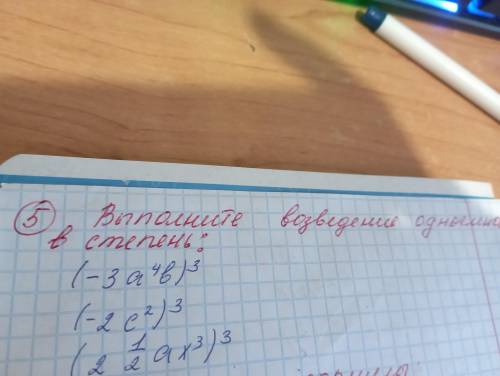 5 Выполните возведение
в степень:
(-3a⁴b)³
(-2c²)³
(2 1/2 ax³)³